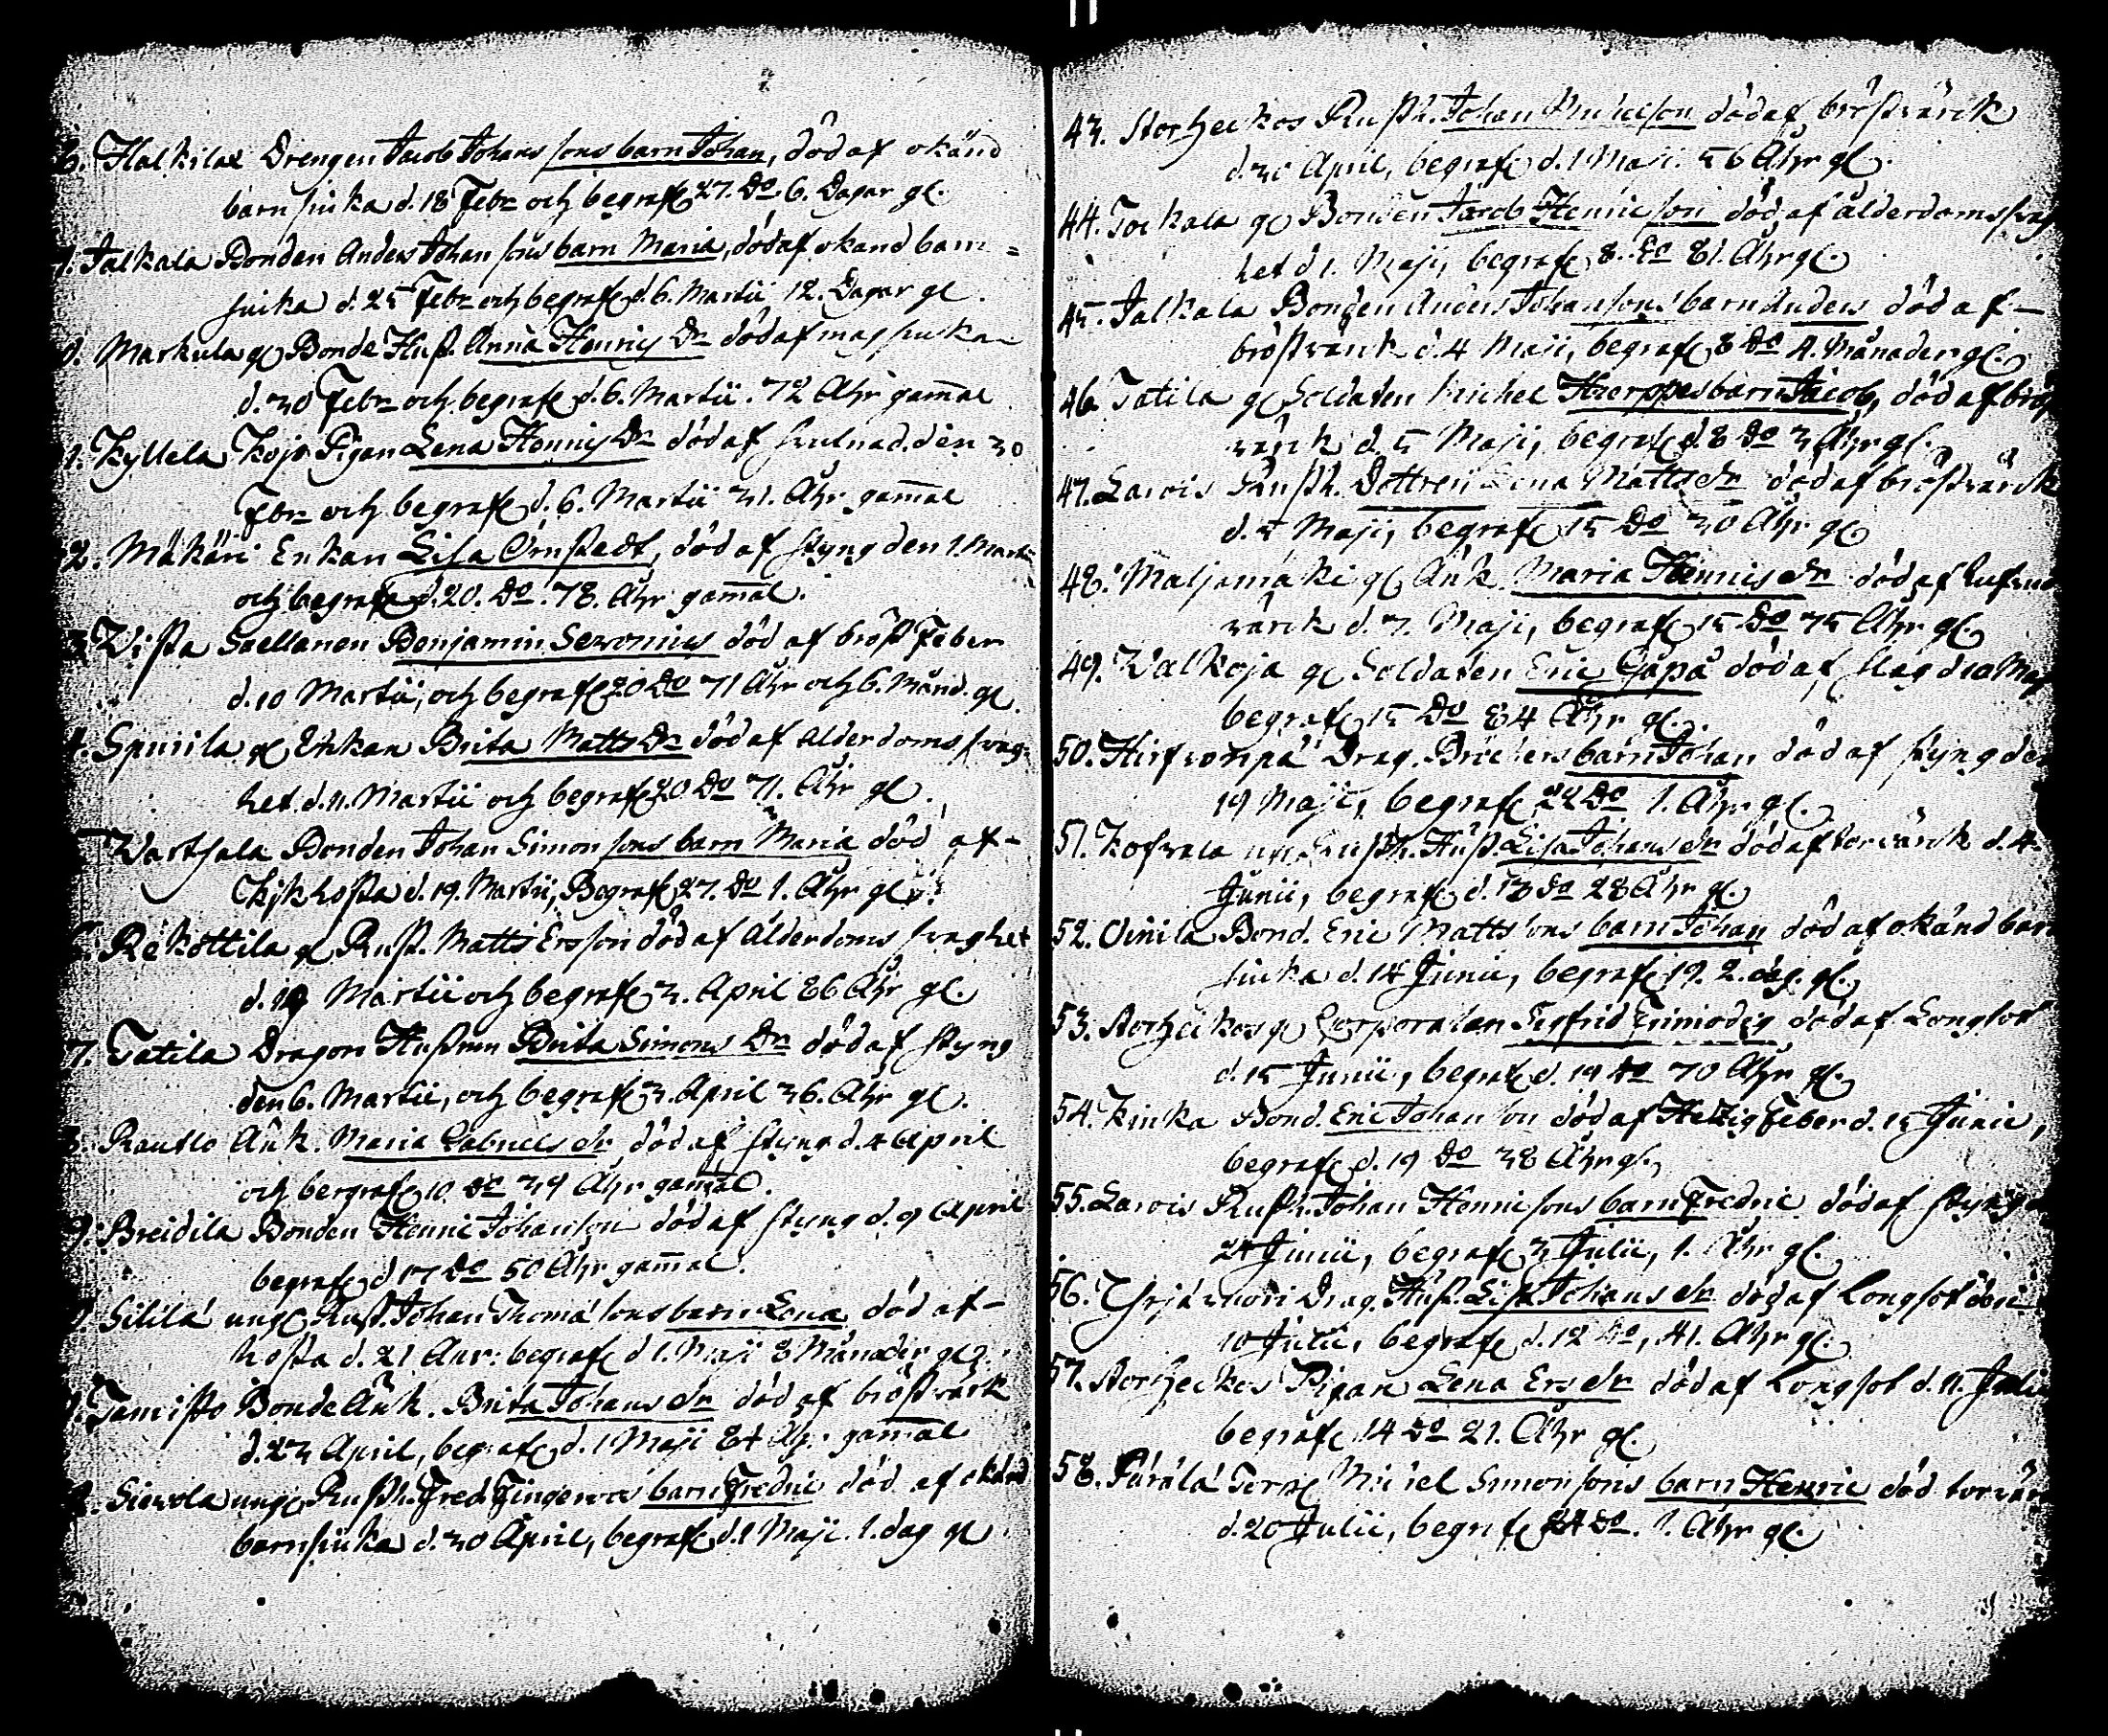 Halkilax Drengen Jacob Johans sons barn Johan, död af okänd
barnsiuka d. 18 Febr och begrafe 27. Do 6. Dagar gl.
Jalkala Bonden Anders Johan sons barn Maria, död af okand barn=
siuka d. 25 Febr och begrafe d. 6. Martii 12. Dagar gl.
Markula gl Bonde Hust. Anna Henrics Dr död af magsiuka
d. 30 Febr och begrafe d. 6. Martii. 72 Åhr gamal
Kyllela Kojs Pigan Lena Henrics Dr död af den 30
Febr och begrafe d. 6. Martii 31. Åhr gamal
2. Mäkäri Enkan Lisa död af styng den 1. Martii
och begrafe d. 20. Do. 78. Åhr gamal.
3 Wista Benjamin död af bröst Feber
d. 10 Martii, och begrafe 20 Do 71 Åhr och 6. Månd. gl.
4. gl Enkan Brita Matts Dr död af Alderdoms swag-
het. d. 11. Martii och begrafe 20 Do 71. Åhr gl.
Bonden Johan Simon sons barn Maria död af-
Kikhosta d. 19. Martii, Begrafe 27. Do 1. Åhr gl.
Rekottila gl Rust. Matts Ersson död af Ålderdoms swaghet
d. 19 Martii och begrafe 3. April 86 Åhr gl.
7. Tatila Dragon Hustrun Brita Simons Dr död af styng
den 6. Martii, och begrafe 3. April 36. Åhr gl.
Rautlo Änk. Maria Gabriels dr, död af styng d. 4 April
och bergrafe 10 Do 34 Åhr gamal.
9. Breidila Bonden Henric Johanson död af styng d. 9 April
begrafe d 17 Do 50 Åhr gamal.
Sililä ungl Rust. Johan Thomæ sons barn Lena död af-
hosta d. 21 Apr: begrafe d 1. Maji 8 Månader gl.
Bonde Änk. Brita Johans dr död af bröstvärk
d. 23 April, begrafe d. 1 Maji 84 Åhr gamal
ungl Rusth. Fred. barn Fredric död af okänd
barnsiuka d. 30 April, begrafe d. 1 Maji. 1. dag gl
43. Storheikos Rusth. Johan Michelson död af bröstvärck
d. 30 April, begrafe d. 1 Maji. 56 Åhr gl.
44. Torkala gl Bonden Jacob Henric son död af ålderdoms swag
het d 1. Maji, begrafe 8. Do 81. Åhr gl.
45. Jalkala Bonden Anders Johansons barn Anders död af-
bröstvärck d. 4 Maji, begrafe 8 Do 4. Månader gl.
46. Tatila gl Soldaten Michel barn Jacob, död af bröst
värck d. 5 Maji, begrafe d. 8 Do 3 Åhr gl.
47. Larvis Rusth. Dottren Lena Matts dr död af bröstvärck
d. 5 Maji, begrafe 15 Do 30 Åhr gl
48. Maljamäki gl Änk. Maria Henrics dr död af hufvud
värck d. 7. Maji, begrafe 15 Do 75 Åhr gl.
49. Walkoja gl Soldaten Eric Gåpå död af slag d 10 Maj
begrafe 15 Do 84 Åhr gl.
50. Hirfwonpä Drag. barn Johan död af styng den
19 Maji, begrafe 22 Do 1. Åhr gl.
51. Rusth. Hust. Lisa Johans dr död af torvärck d. 4
Junii, begrafe d. 13 Do 28 Åhr gl.
52. Oinila Bond. Eric Matts sons barn Johan död af okänd barn
siuka d. 14 Junii, begrafe 19. 2. dag. gl.
53. Storheikos gl Corporalen Sigfrid Frimodig död af Longsot
d. 15 Junii, begrafe d. 19 Do 70 Åhr gl.
54. Kinka Bond. Eric Johan son död af Hetzig Feber d. 15 Junii,
begrafe d. 19 Do 38 Åhr gl.
55. Larvis Rusth. Johan Henricsons barn Fredric död af styng
24 Junii, begrafe 3 Julii, 1. Åhr gl.
56. Drag. Hust. Lisa Johans dr död af Longsot den
10 Julii, begrafe d. 12 Do, 41. Åhr gl.
57. Storheikos Pigan Lena Ers dr död af Longsot d. 11. Julii
begrafe 14 Do 21. Åhr gl.
58. Pärälä Torp Michel Simonsons barn Henric död torvärck
d. 20 Julii, begrafe 24 Do. 1. Åhr gl.